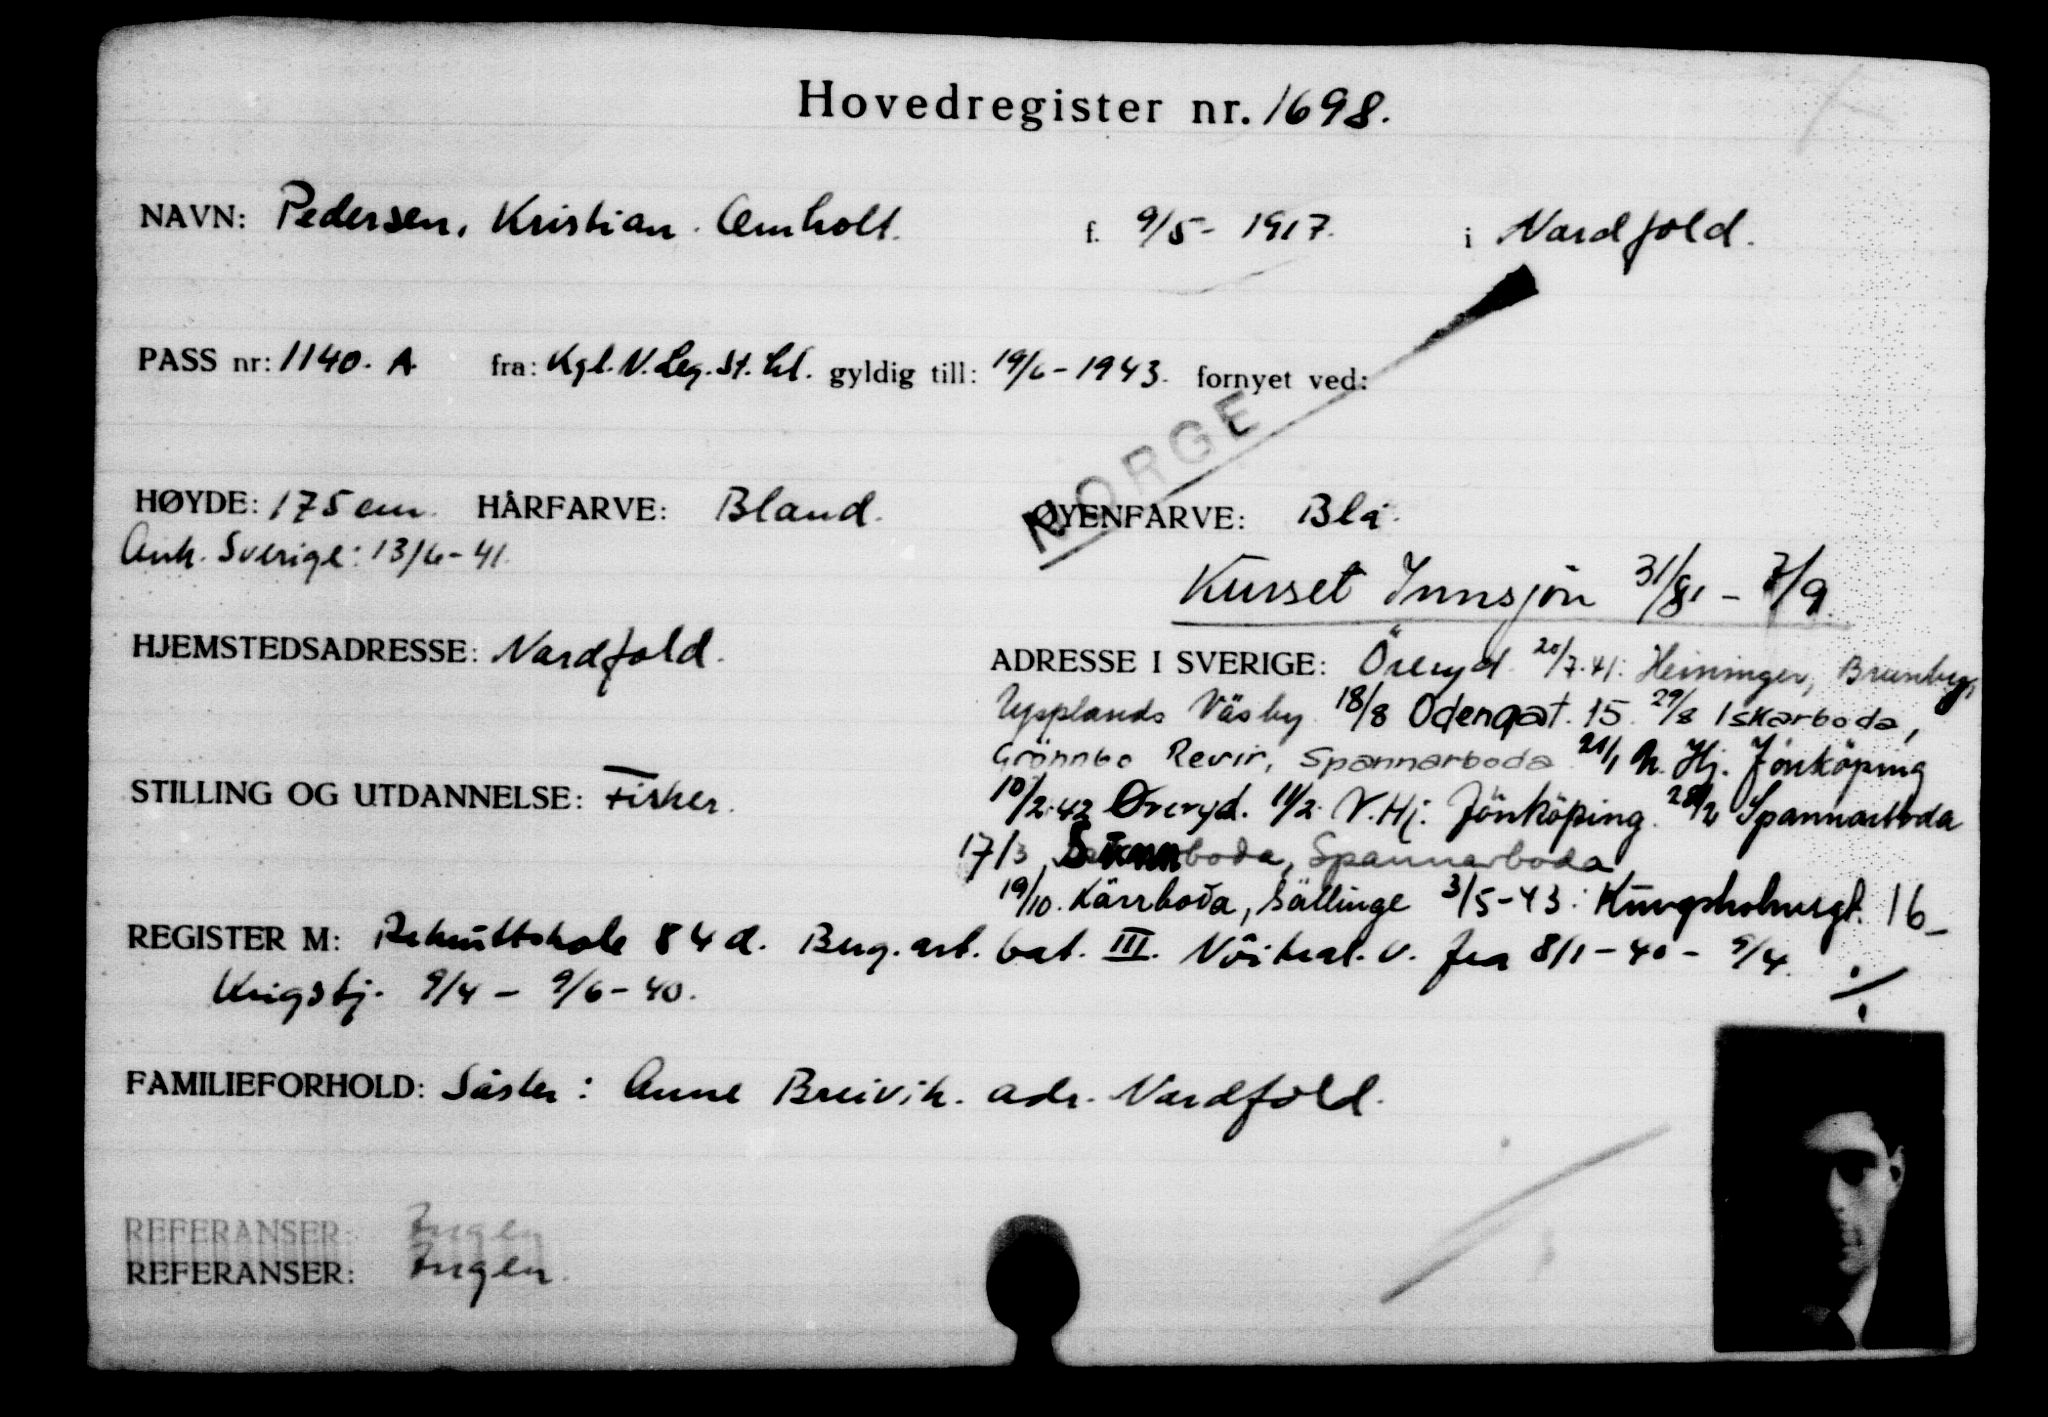 Hovedregister nr. 1698.
NAVN: Pedersen, Kristian Amholt. f. 9/5- 1917. i Nordfold.
PASS nr: 1140. A. fra: Kgl. N. Leg. St. hl. gyldig till: 19/6-1943. fornyet ved:
NORGE
HØYDE: 175 cm. HÅRFARVE: Bland. ØYENFARVE: Blå.
Ank. Sverige: 13/6-41.
Kurset Innsjön 31/8 - 7/9
HJEMSTEDSADRESSE: Nordfold.
ADRESSE I SVERIGE: Öreryd 20/7.41: Heininger, Brunby,
Upplands Väsby 18/8 Odengat. 15. 29/8 Iskarboda,
Grönnbo Revir, Spannarboda 21/1 N. Hj. Jönköping
STILLING OG UTDANNELSE: Fisker.
10/2.42 Øreryd. 11/2 N. Hj. Jönköping. 28/2 Spannarboda
17/3 boda, Spannarboda
19/10. Kärrboda, Sällinge 3/5-43: Kungsholmsgt. 16
REGISTER M: Rekruttskole 84 d. Berg. art. bat. III. Nöitral. v. fra 8/1-40- 9/4.
Krigstj. 9/4 - 9/6-40.
FAMILIEFORHOLD: Söster: Anne Breivik. adr. Nordfold.
REFERANSER: Ingen
REFERANSER: Ingen.